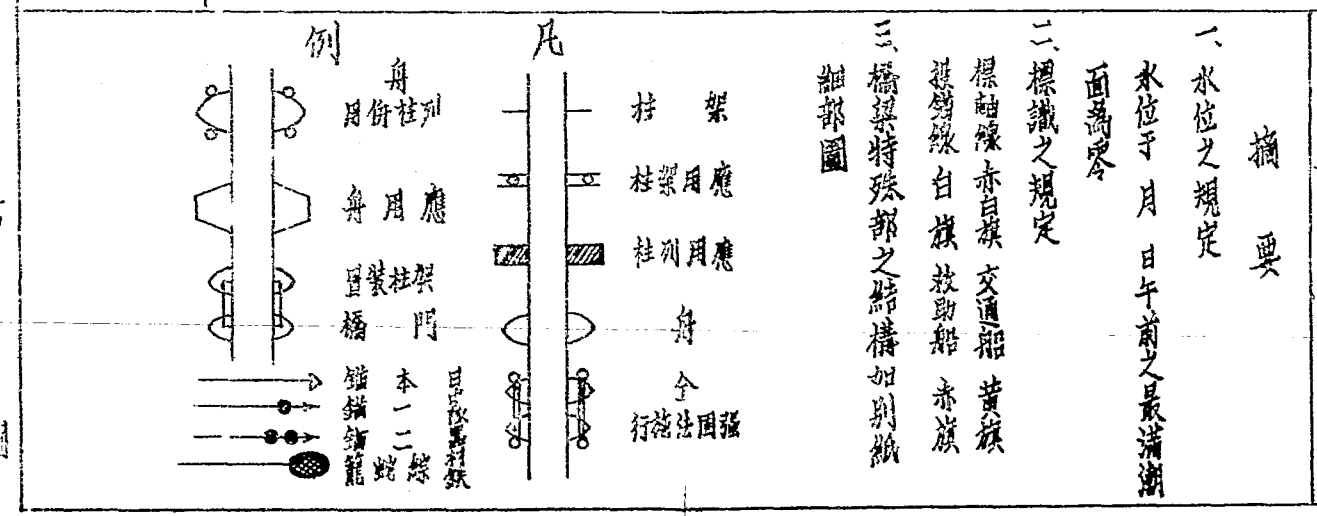 摘要
一、水位之規定
水位于 月 日午前之最満潮
面為零
二、標識之規定
標軸線 赤白旗 交通船 黄旗
投錨線 白旗 救助船 赤旗
三、橋梁特殊部之結構如別紙
細部圖
凡例
架柱
應用架柱
應用列柱
舟
仝
强固法施行
舟
列柱併用
應用舟
架柱装置
門橋
本錨
一錨
二錨
蛇籠